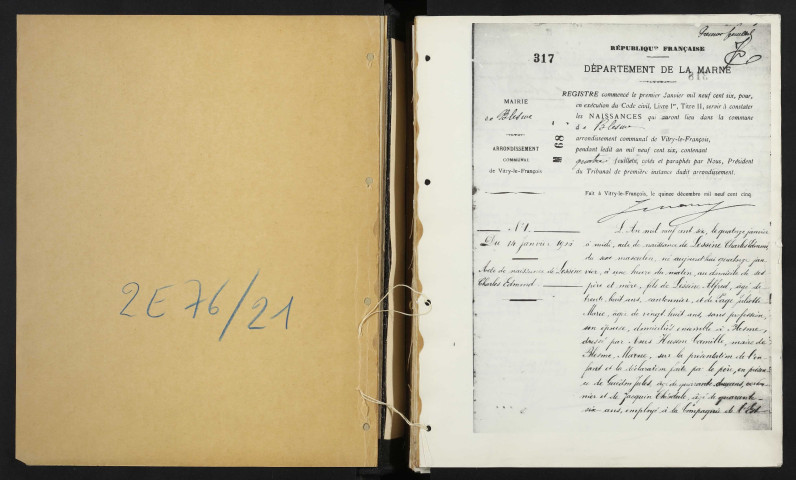 2E76/21
317
RÉPUBLIQUE FRANÇAISE
DÉPARTEMENT DE LA MARNE
MAIRIE
de Blesme
ARRONDISSEMENT
COMMUNAL
de Vitry-le-François
M 68
REGISTRE commencé le premier Janvier mil neuf cent six, pour,
en exécution du Code civil, Livre Ier, Titre II, servir à constater
les NAISSANCES qui auront lieu dans la commune
de Blesme
arrondissement communal de Vitry-le-François,
pendant ledit an mil neuf cent six, contenant
quatre feuillets, cotés et paraphés par Nous, Président
du Tribunal de première instance dudit arrondissement.
Fait à Vitry-le-François, le quinze décembre mil neuf cent cinq.
N° 1.
Du 14 janvier
Acte de naissance de Lessine
Charles Edmond
L'An mil neuf cent six, le quatorze janvier
à midi, acte de naissance de Lessine Charles Edmond
du sexe masculin, né aujourd'hui quatorze jan
vier, à une heure du matin, au domicile de ses
père et mère, fils de Lessine Alfred, âgé de
trente huit ans, cantonnier, et de Juliette
Marie, âgée de vingt huit ans, sans profession,
son épouse, domiciliés ensemble à Blesme,
dressé par Nous Husson Camille, maire de
Blesme, Marne, sur la présentation de l'en
fant et la déclaration faite par le père, en présen
ce de Jules, âgé de quarante ans, canton
nier et de Jacquin, âgé de quarante
six ans, employé à la Compagnie de l'Est